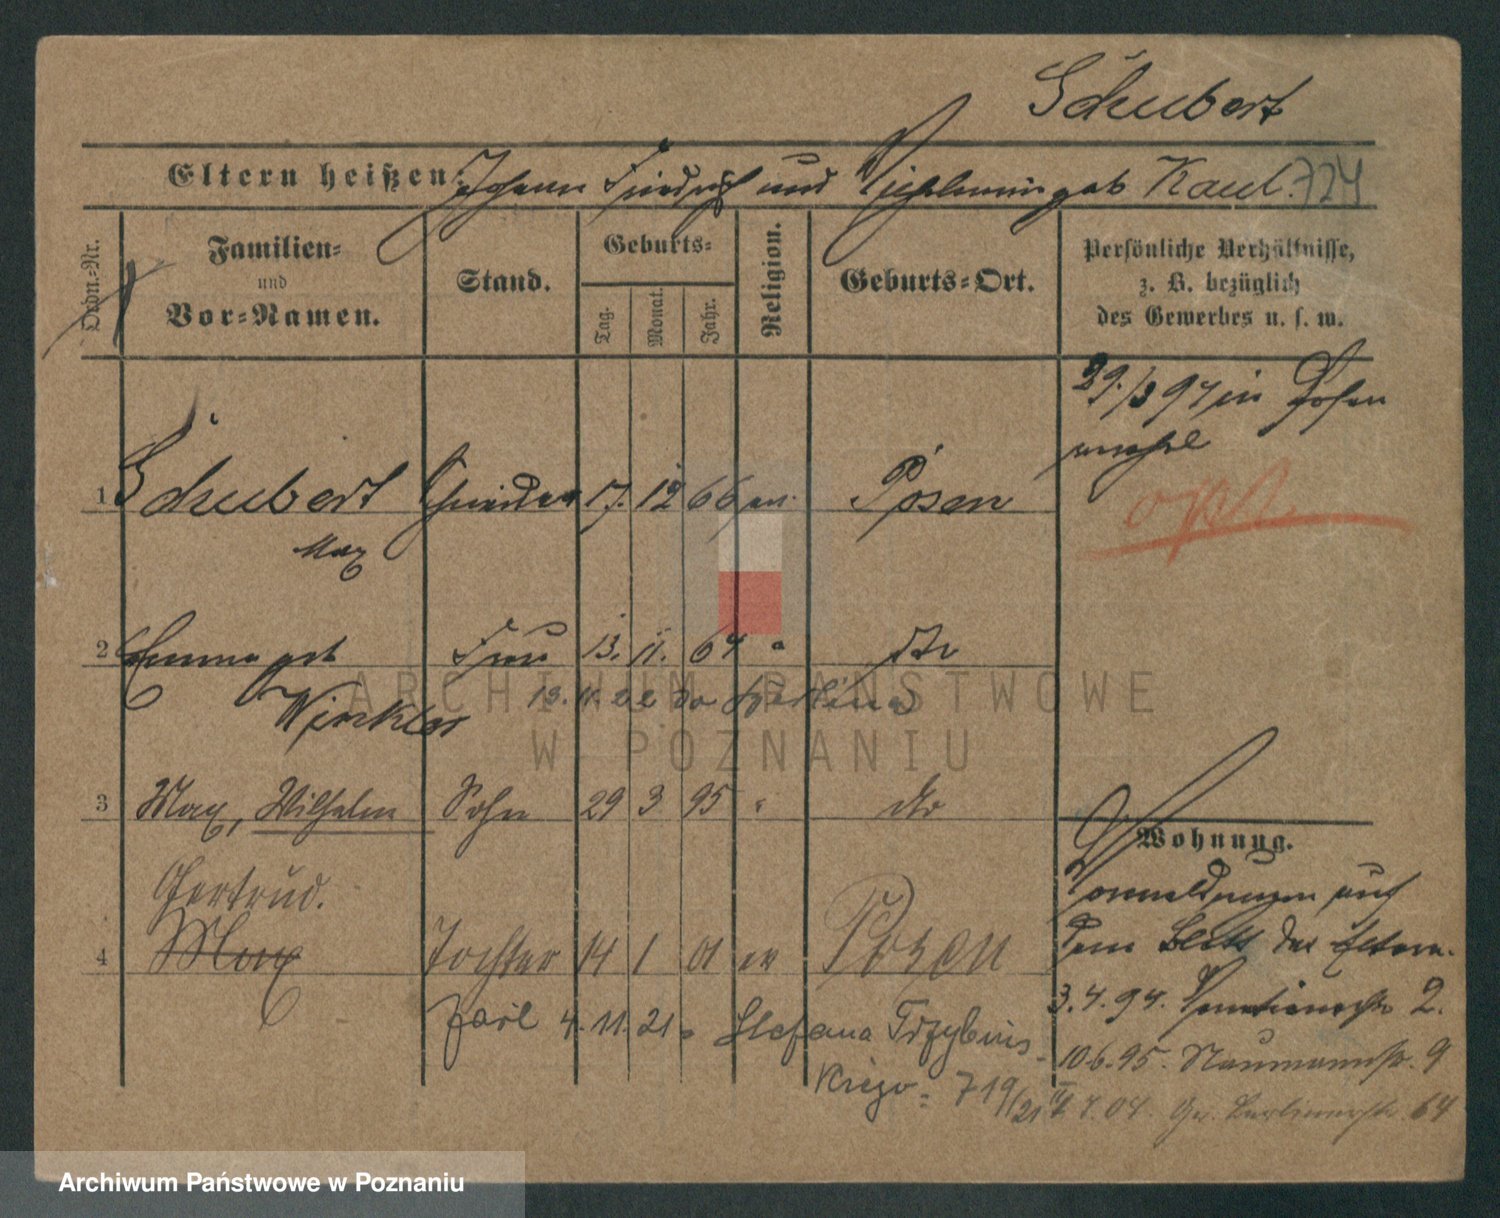 Schubert
Eltern heißen: Johann Friedrich und Wilhelmine geb Kaul. 724
Ordn.-Nr.
Familien-
und
Vor-Namen.
Stand.
Geburts-
Tag.
Monat.
Jahr.
Religion.
Geburts-Ort.
Persönliche Verhältnisse,
z. B. bezüglich
des Gewerbes u. s. w.
29./3 94 in Posen
1 Schubert 17. 12 66 ev. Posen
Max
2 Emma geb Frau 13. 11. 64 " dto
Winkler
13. 11. 22 Berlin
ARCHIWUM PAŃSTWOWE
W POZNANIU
3 Max, Wilhelm Sohn 29 3 95 " dto
Wohnung.
Vormeldungen auf
dem Blatt der Eltern.
Gertrud.
4 Max Tochter 14 1 01 ev Posen
3.4.94. 2.
4.11.21 Stefana
10.6.95. Naumannstr. 9
719/21
4.04. Gr. Berlinerstr. 64
Archiwum Państwowe w Poznaniu